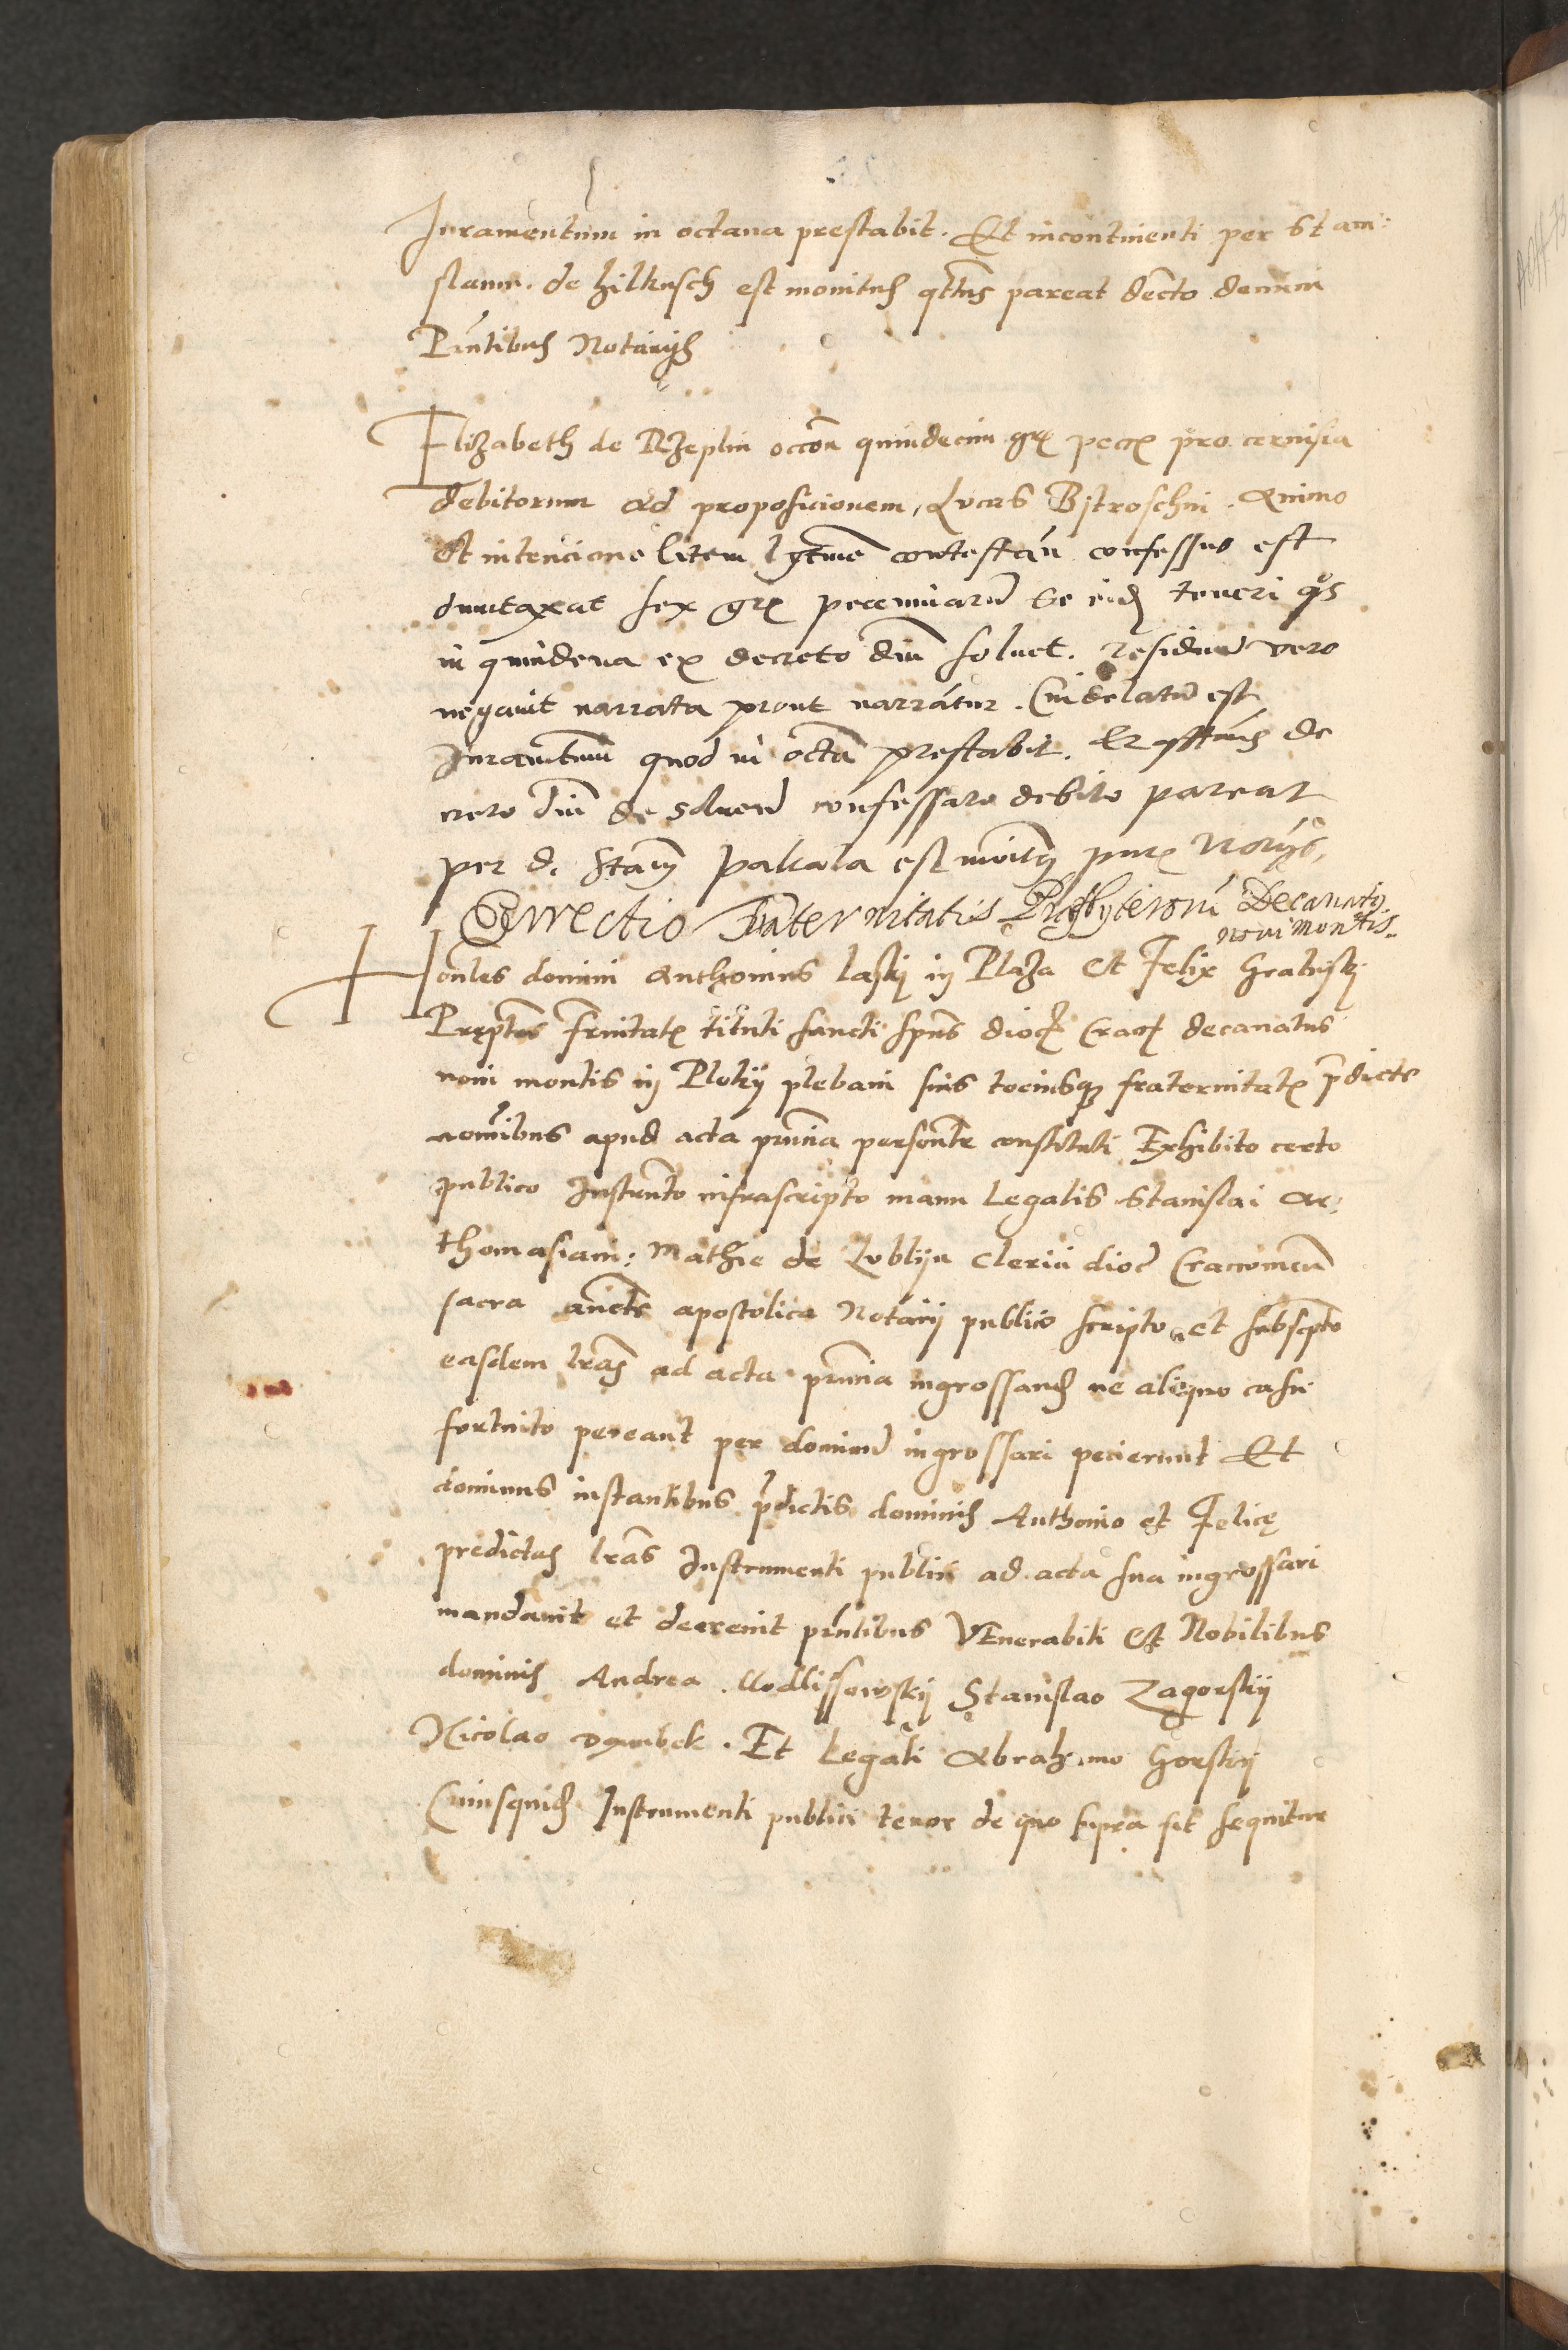 Juramentum in octava prestabit. Et incontinenti per Stani:
slaum. de hilkusch est monitus qttus pareat decto domini
Pntibus Notarijs
Elizabeth de Rzeplin occon quindecim gr pecc pro cervisia
debitorum ad proposicionem, Lucas Bistroschni. Animo
Et intencione litem lgtme contestan confessus est
dumtaxat sex gr pecuniaru se eid teneri qs
in quindena ex decreto dni solvet. residuu vero
negavit narrata prout narratur. Cui delatu est
Juramtum quod in octa prestabit. Et qttus de
creto dni de solvend confessato debito pareat
per d. Stani Pakala est monitus pntx Norijs,
Correctio Fraternitatis Presbyterorum Decanatus
novi montis.
Honles domini Anthonius laskij in Plaza Et Felix Grabiski
Preptes frnitatx tituli sancti spus dioc Crac decanatus
novi montis in Plokij plebani suis tociusque fraternitatx pdicte
nomibus apud acta pntia personlr constituti Exhibito certo
publico Instrnto infrascripto manu Legalis Stanislai ar:
thomasiani: Mathie de Lublijn Clerici dioc Cracoviens
sacra auncte apostolica Notarij publico scripto et subscpto
easdem lras ad acta pntia ingrossand ne aliquo casu
fortuito pereant per dominu ingrossari pecierunt Et
dominus instantibus pdictis dominis Anthonio et Felice
predictas lras Instrumenti publici ad acta sua ingrossari
mandavit et decrevit pntibus Venerabili Et Nobilibus
dominis Andrea Modlissowskij Stanislao Zagorskij
Nicolao Dembek. Et Legali Abrahamo Gorskij
Cuiusquid Instrumenti publici tenor de quo supra sit sequitur